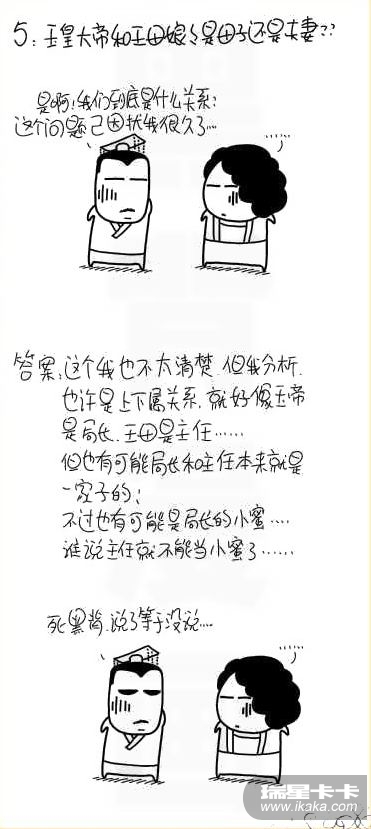 5:玉皇大帝和王母娘々是母子还是夫妻??
是啊!我们到底是什么关系:
这个问题己困扰我很久了...
答案:这个我也不太清楚.但我分析.
也许是上下属关系.就好像玉帝
是局长.王母是主任......
但也有可能局长和主任本来就是
一窝子的;
不过也有可能是局长的小蜜....
谁说主任就不能当小蜜了......
死黑背.说了等于没说....
瑞星卡卡
www.ikaka.com